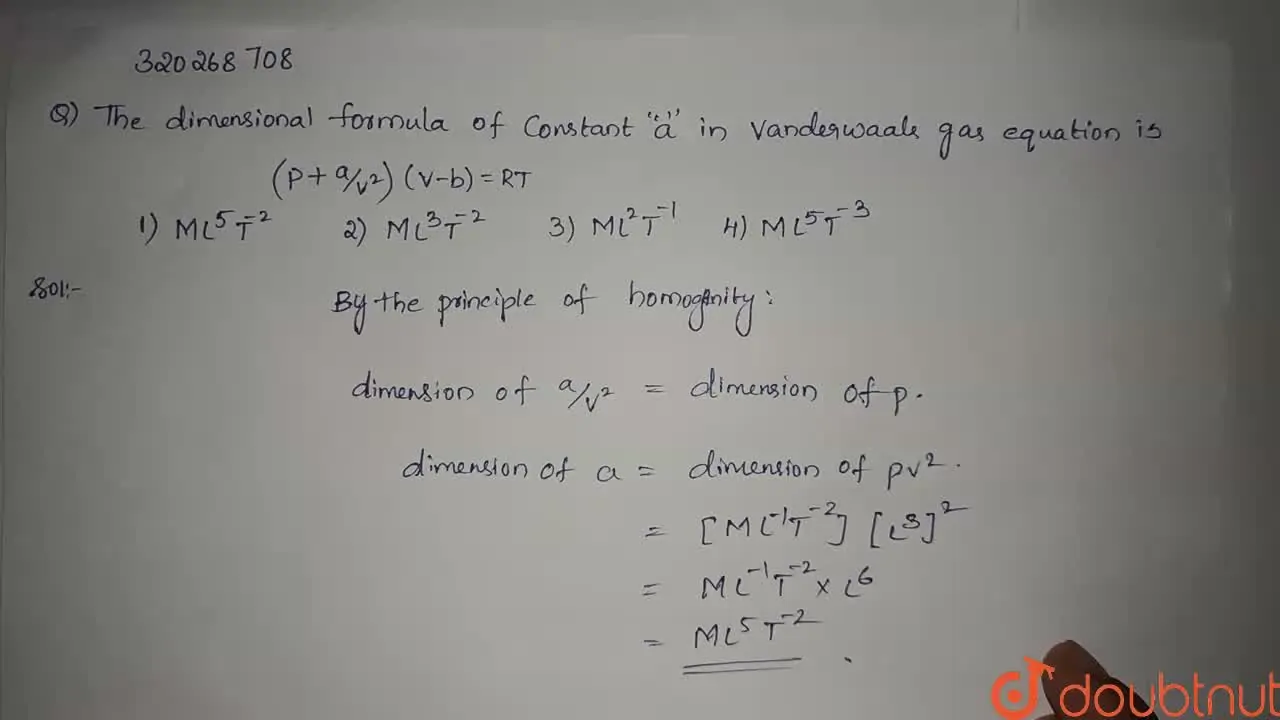 320268 708
Q) The dimensional formula of Constant "a" in Vanderwaals gas equation is
(P + a/V²) (V-b) = RT
1) ML⁵T⁻² 2) ML³T⁻² 3) ML²T⁻¹ 4) ML⁵T⁻³
Sol:-
By the principle of homogenity:
dimension of a/V² = dimension of p.
dimension of a = dimension of pv².
= [ML⁻¹T⁻²] [L³]²
= ML⁻¹T⁻² × L⁶
= ML⁵T⁻²
doubtnut